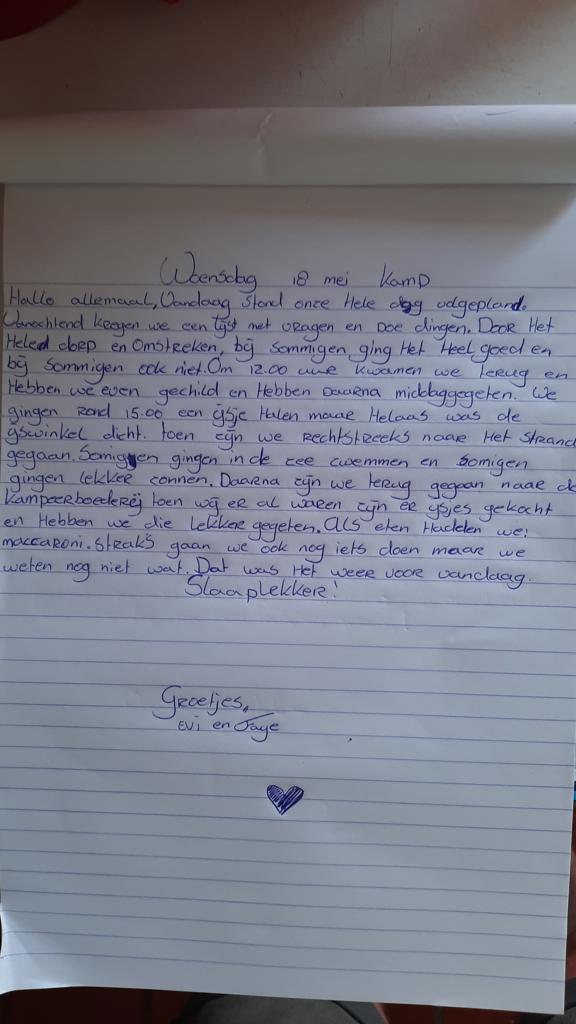 Woensdag 18 mei Kamp
Hallo allemaal, Vandaag stond onze Hele dag udgepland.
Vanochtend kregen we een lijst met vragen en Doe dingen. Door Het
Heled dorp en Omstreken, bij Sommigen ging Het Heel goed en
bij Sommigen ook niet. Om 12.00 uur kwamen we terug en
Hebben we even gechild en Hebben Daarna middaggegeten. We
gingen rond 15.00 een ijsje Halen maar Helaas was de
ijswinkel dicht. toen zijn we Rechtstreeks naar Het Strand
gegaan. Somigen gingen in de zee zwemmen en Somigen
gingen lekker zonnen. Daarna zijn we terug gegaan naar de
Kampeerboederij toen wij er al waren zijn er ijsjes gekocht
en Hebben we die lekker gegeten. Als eten Hadden we:
maccaroni. straks gaan we ook nog iets doen maar we
weten nog niet wat. Dat was Het weer voor vandaag.
Slaaplekker!
Groetjes,
Evi en Jaye